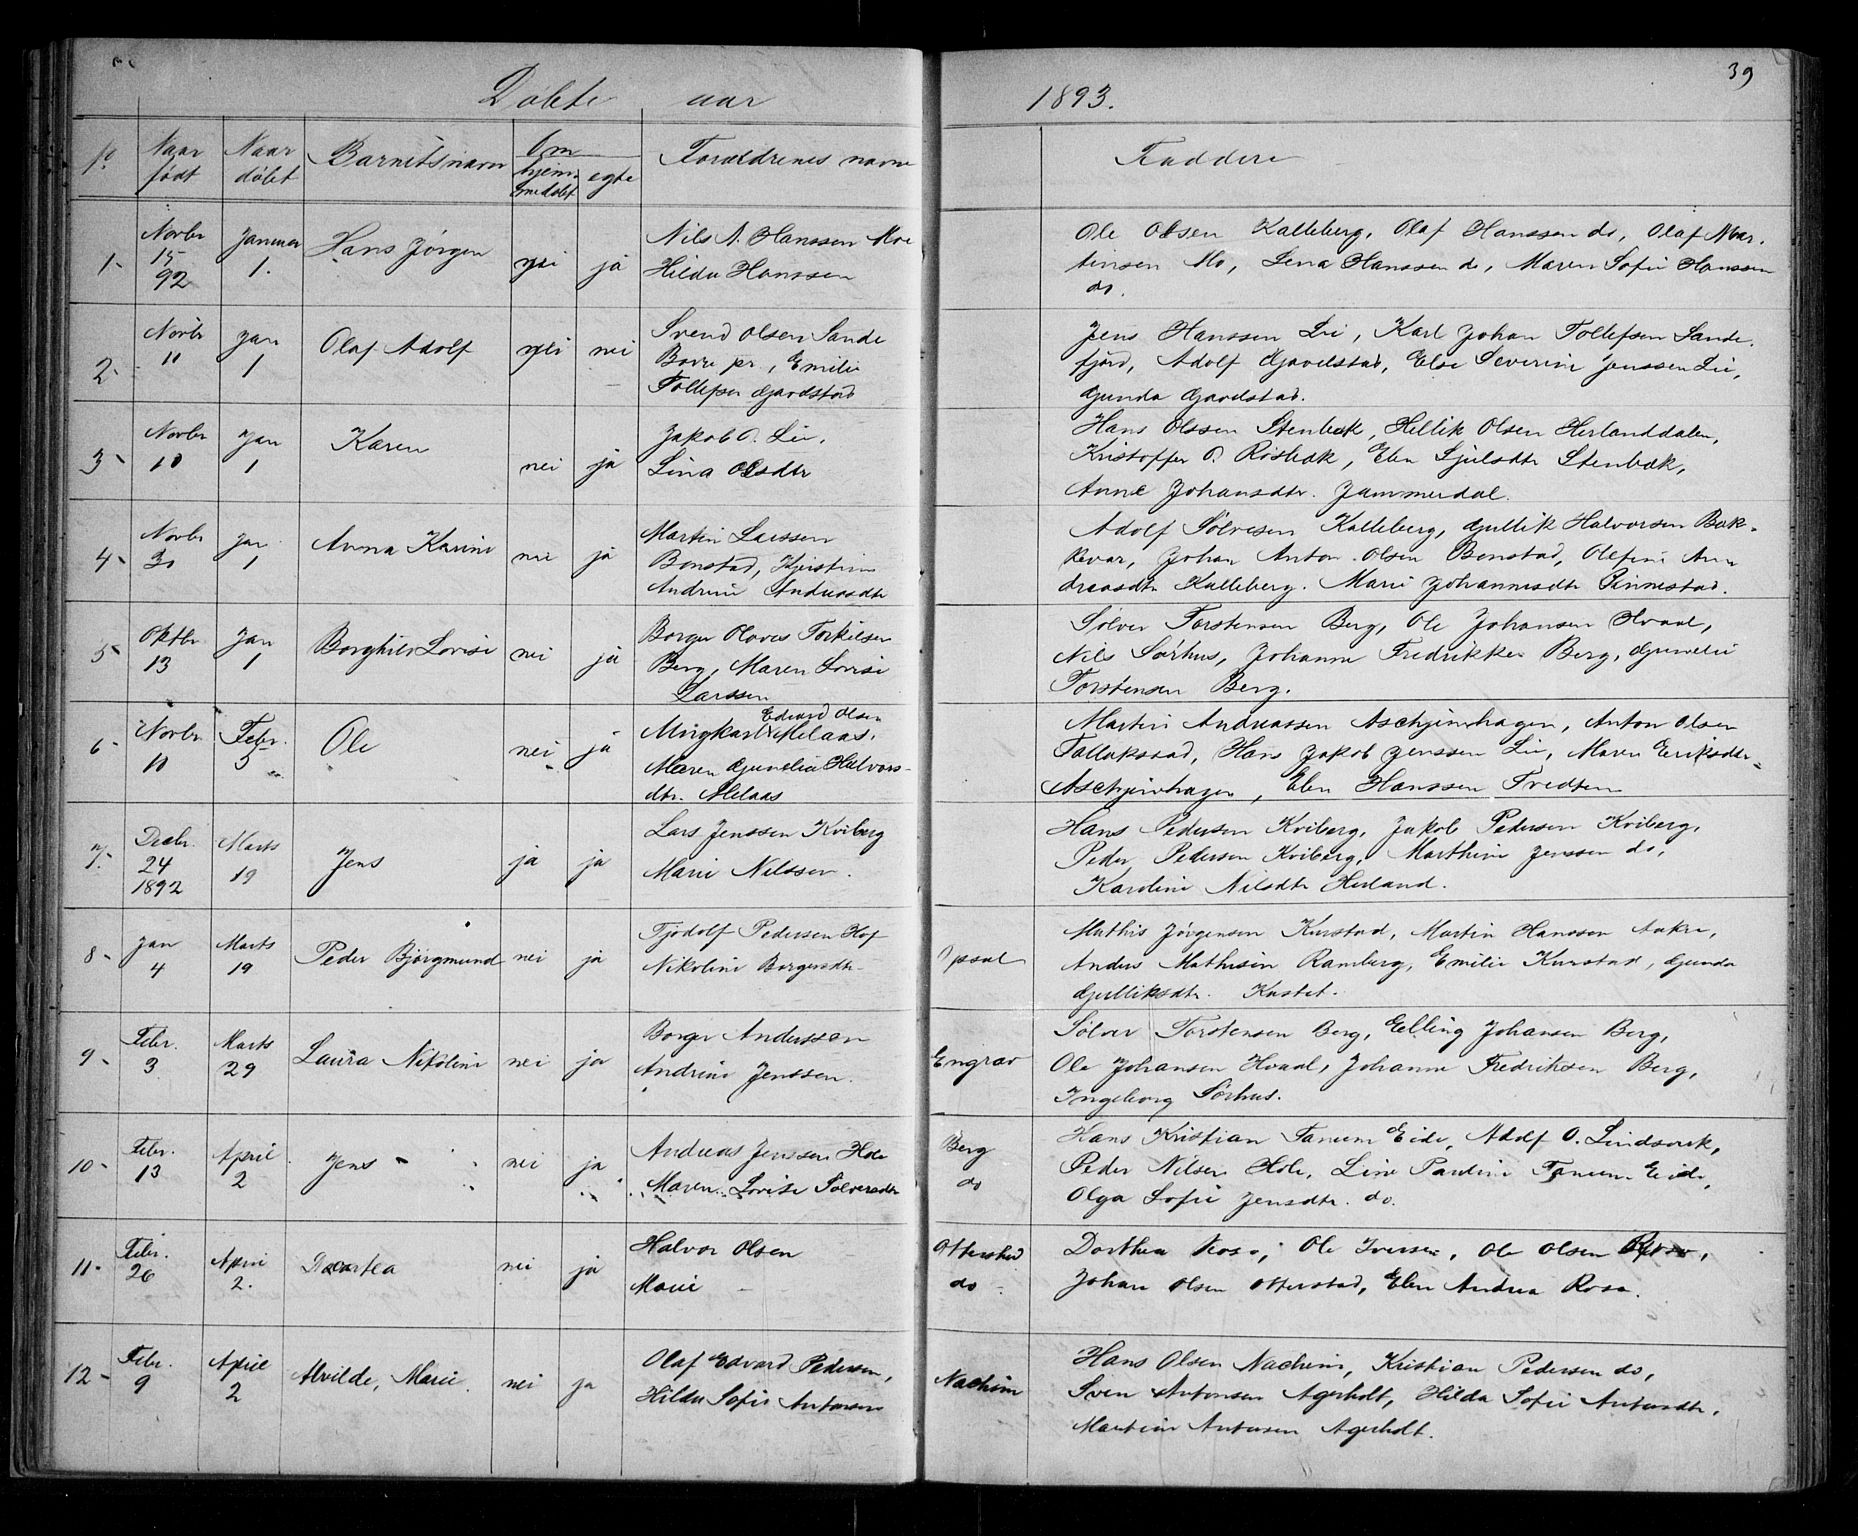 Døbte aar 1893. 39
No Naar født Naar døbt Barnets navn Om hjemmedøbt egte Forældrenes navne Faddere
1. Novbr 15 92 Januar 1. Hans Jørgen nei ja
Nils A. Hanssen Moe
Hilda Hanssen
Ole Olsen Kalleberg, Olaf Hanssen do, Olaf Mar-
tensen Mo, Lena Hanssen do, Maren Sofie Hanssen
do.
2. Novbr 11 Jan 1 Olaf Adolf nei nei
Svend Olsen Sande
Borre pr, Emilie
Tollefsen Gjavelstad
Jens Hanssen Lie, Karl Johan Tollefsen Sande-
fjord, Adolf Gjavelstad, Else Severine Jenssen Lie,
Gunda Gjavelstad.
3. Novbr 10 Jan 1 Karen nei ja
Jakob O. Lie,
Lina Olsdtr
Hans Olssen Stenbæk, Hellik Olsen Herlanddalen,
Kristoffer O. Risbæk, Elen Sjulsdtr Stenbæk,
Anne Johansdtr. Jammerdal.
4. Novbr 30 Jan 1 Anna Karine nei ja
Martin Larssen
Bonstad, Kjerstine
Andrine Andreasdtr
Adolf Sølvesen Kalleberg, Gullik Halvorsen Bak-
kevar, Johan Anton Olsen Bonstad, Olefine An-
dreasdtr Kalleberg. Marie Johannesdtr Pinnestad.
5. Oktbr 13 Jan 1 Borghild Lovise nei ja
Borger Olaves Torkilsen
Berg, Maren Lovise
Larssen
Sølver Torstensen Berg, Ole Johansen Hvaal,
Nils Sørhus, Johanne Fredrikke Berg, Gunelie
Torstensen Berg.
6. Novbr 10 Febr. 5 Ole nei ja
Edvard Olsen
Myrkart Melaas,
Maren Gunelie Halvors-
dtr. Melaas
Martin Andreassen Aschjemhagen, Anton Olsen
Tallakstad, Hans Jakob Jenssen Lie, Maren Eriksdtr
Aschjemhagen, Elen Hanssen Tredten
7. Decbr. 24 1892 Marts 19 Jens ja ja
Lars Jenssen Kviberg
Marie Nilssen.
Hans Pedersen Kviberg, Jakob Pedersen Kviberg,
Peder Pedersen Kviberg, Marthine Jenssen do,
Karoline Nilsdtr Herland.
8. Jan 4 Marts 19 Peder Bjørgmund nei ja
Tjodolf Pedersen Hof
Nikoline Borgersdtr
Opsal
Mathis Jørgensen Kurstad, Martin Hanssen Aakre,
Anders Mathisen Ramberg, Emilie Kurstad, Gunda
Gulliksdtr. Kastet.
9. Febr. 3 Marts 29 Laura Nikoline nei ja
Borger Anderssen
Andrine Jenssen.
Engrav
Sølver Torstensen Berg, Elling Johansen Berg,
Ole Johansen Hvaal, Johanne Fredriksen Berg,
Ingeborg Sørhus.
10. Febr. 13 April 2 Jens nei ja
Andreas Jenssen Hole
Maren Lovise Sølversdtr
Berg
do
Hans Kristian Tanum Eide, Adolf O. Lindsverk,
Peder Nilsen Hole, Line Pauline Tanum Eide,
Olga Sofie Jensdtr. do.
11. Febr. 26 April 2. Dortea nei ja
Halvor Olsen
Marie —
Otterstad
do
Dorthea Rosa, Ole Iversen, Ole Olsen
Johan Olsen Otterstad, Elen Andrea Rosa.
12. Febr. 9 April 2 Alvilde, Marie nei ja
Olaf Edvard Pedersen,
Hilda Sofie Antonsen
Nachim
Hans Olsen Nachim, Kristian Pedersen do,
Sven Antonsen Agerholt, Hilda Sofie Antonsdtr,
Martin Antonsen Agerholt.